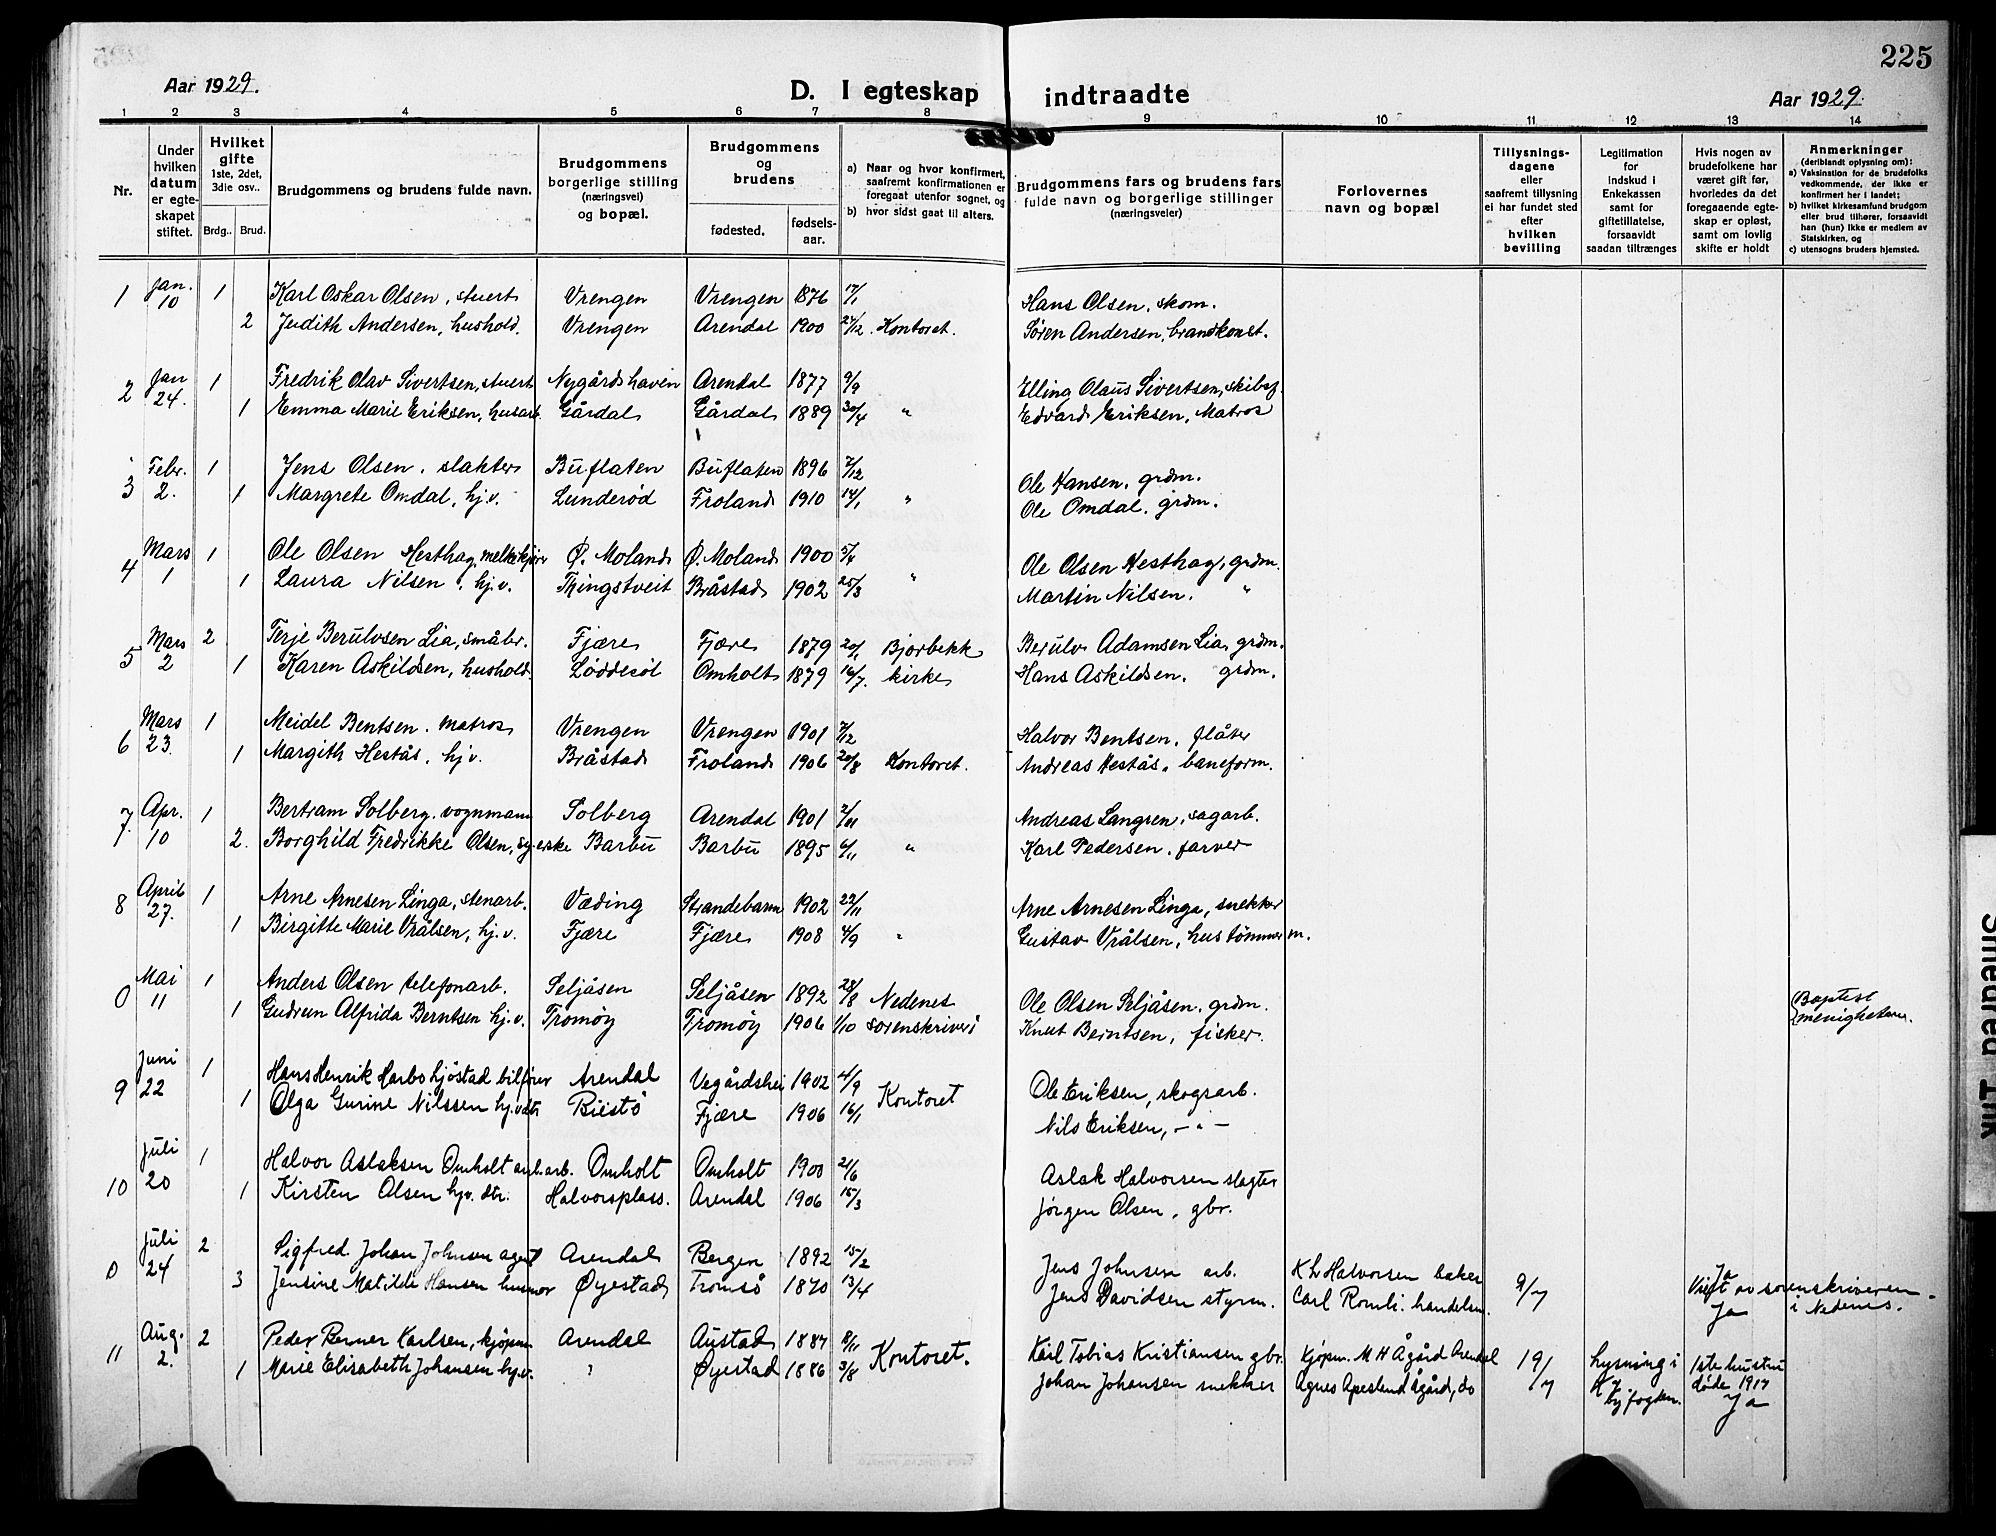 225
Aar 1929.
D. I egteskap indtraadte
Aar 1929.
1 2 3 4 5 6 7 8 9 10 11 12 13 14
Nr.
Under hvilken datum er egteskapet stiftet.
Hvilket gifte 1ste, 2det, 3die osv..
Brdg.. Brud.
Brudgommens og brudens fulde navn.
Brudgommens borgerlige stilling (næringsvei) og bopæl.
Brudgommens og brudens
fødested. fødselsaar.
a) Naar og hvor konfirmert, saafremt konfirmationen er foregaat utenfor sognet, og
b) hvor sidst gaat til alters.
Brudgommens fars og brudens fars fulde navn og borgerlige stillinger (næringsveier)
Forlovernes navn og bopæl
Tillysningsdagene eller saafremt tillysning ei har fundet sted efter hvilken bevilling
Legitimation for indskud i Enkekassen samt for giftetillatelse, forsaavidt saadan tiltrænges
Hvis nogen av brudefolkene har været gift før, hvorledes da det foregaaende egteskap er opløst, samt om lovlig skifte er holdt
Anmerkninger (deriblandt oplysning om): a) Vaksination for de brudefolks vedkommende, der ikke er konfirmert her i landet; b) hvilket kirkesamfund brudgom eller brud tilhører, forsaavidt han (hun) ikke er medlem av Statskirken, og c) utensogns bruders hjemsted.
1 Jan. 10 1 Karl Oskar Olsen, stuert Vrengen Vrengen 1876 17/1 Hans Olsen, skom.
2 Judith Andersen, hushold. Vrengen Arendal 1900 24/12 Kontoret. Søren Andersen, brandkonst.
2 Jan 24. 1 Fredrik Olav Sivertsen, stuert Nygårdshaven Arendal 1877 9/9 Elling Olaus Sivertsen, skibsf.
1 Emma Marie Eriksen, husarb. Gårdal Gårdal 1889 30/4 " Edvard Eriksen, Matros
3 Febr. 2. 1 Jens Olsen, slakter Buflaten Buflaten 1896 7/12 Ole Hansen, grdm.
1 Margrete Omdal, hj.v. Lunderød Froland 1910 14/1 " Ole Omdal, grdm.
4 Mars 1 1 Ole Olsen Hesthag, melkekjører Ø. Moland Ø. Moland 1900 5/4 Ole Olsen Hesthag, grdm.
1 Laura Nilsen, hj.v. Thingstveit Bråstad 1902 25/3 " Martin Nilsen. "
5 Mars 2 2 Terje Berulvsen Lia, småbr. Fjære Fjære 1879 20/1 Bjorbekk Berulv Adamsen Lia, grdm.
1 Karen Askildsen, hushold. Løddesøl Omholt 1879 16/7. kirke Hans Askildsen. grdm.
6 Mars 23. 1 Meidel Bentsen, matros Vrengen Vrengen 1901 7/12 Halvor Bentsen, fløter
1 Margith Hestås, hj.v. Bråstad Froland 1906 20/8 Kontoret. Andreas Hestås, baneform.
7. Apr. 10 1 Bertram Solberg, vognmann Solberg Arendal 1901 2/11 Andreas Langren, sagarb.
2. Borghild Fredrikke Olsen, syerske Barbu Barbu 1895 6/11 " Karl Pedersen, farver
8 April 27. 1 Arne Arnesen Linga, stenarb. Væding Strandebarm 1902 23/11 Arne Arnesen Linga, snekker
1 Birgitte Marie Vrålsen, hj.v. Fjære Fjære 1908 4/9 " Gustav Vrålsen, hustømmerm.
0 Mai 11 1 Anders Olsen telefonarb. Seljåsen Seljåsen 1892 28/8 Nedenes Ole Olsen Seljåsen, grdm. Baptist
1 Gudrun Alfrida Berntsen hj.v. Tromøy Tromøy 1906 1/10 sorenskriveri Knut Berntsen, fisker. menigheten.
9 Juni 22 1 Hans Henrik Harbo Hjøstad bilfører Arendal Vegårdshei 1902 4/9 Kontoret Ole Eriksen, skogsarb.
1 Olga Gurine Nilssen hj.v.dtr Biestø Fjære 1906 16/1 Nils Eriksen, - " -
10 Juli 20 1 Halvor Aslaksen Omholt anl.arb. Omholt Omholt 1900 21/6 Aslak Halvorsen slagter
1 Kirsten Olsen hjv. dtr. Halvorsplass. Arendal 1906 15/3 Jørgen Olsen, gbr.
0 Juli 24 2 Sigfred Johan Johnsen agent Arendal Bergen 1892 15/2 Jens Johnsen arb. Kh Halvorsen baker 9/7 Ja Viet av sorenskriveren
3 Jensine Matilde Hansen husmor Øyestad Tromsø 1870 13/4 Jens Davidsen styrm. Carl Romli. handelsm. Ja i Nedenes.
11 Aug. 2. 2 Peder Berner Karlsen, kjøpm Arendal Austad 1887 8/11 Kontoret. Karl Tobias Kristiansen gbr. Kjøpm. M H Ågård Arendal 19/7 Lysning i byfogden. 1ste hustru døde 1917
1 Marie Elisabeth Johansen hj.v. " Øyestad 1886 3/8 Johan Johansen snekker Agnes Apesland Ågård, do Ja